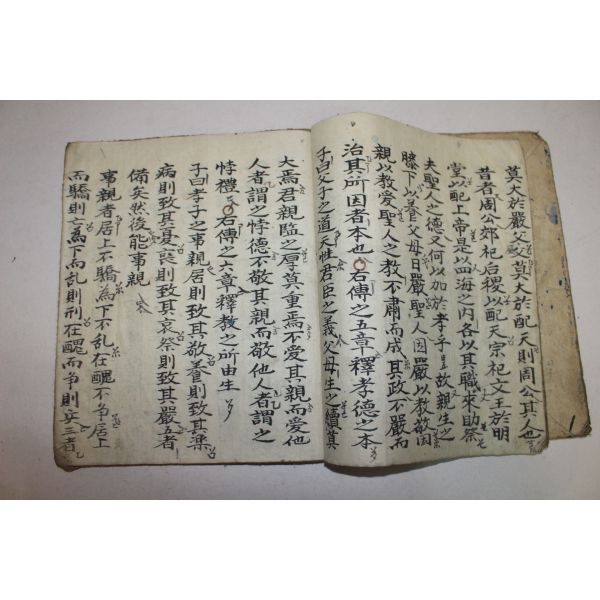 莫大於嚴父嚴父莫大於配天則周公其人也
昔者周公郊祀后稷以配天宗祀文王於明
堂以配上帝是以四海之内各以其職來助祭
夫聖人之德又何以加於孝乎故親生之
膝下以養父母日嚴聖人因嚴以教敬因
親以教愛聖人之教不肅而成其政不嚴而
治其所因者本也 右傳之五章釋孝德之本
子曰父子之道天性君臣之義父母生之續莫
大焉君親臨之厚莫重焉不愛其親而愛他
人者謂之悖德不敬其親而敬他人者謂之
悖禮 右傳之六章釋教之所由生
子曰孝子之事親居則致其敬養則致其樂
病則致其憂喪則致其哀祭則致其嚴五者
備矣然後能事親
事親者居上不驕爲下不乱在醜不争居上
而驕則亡爲下而乱則刑在醜而争則兵三者